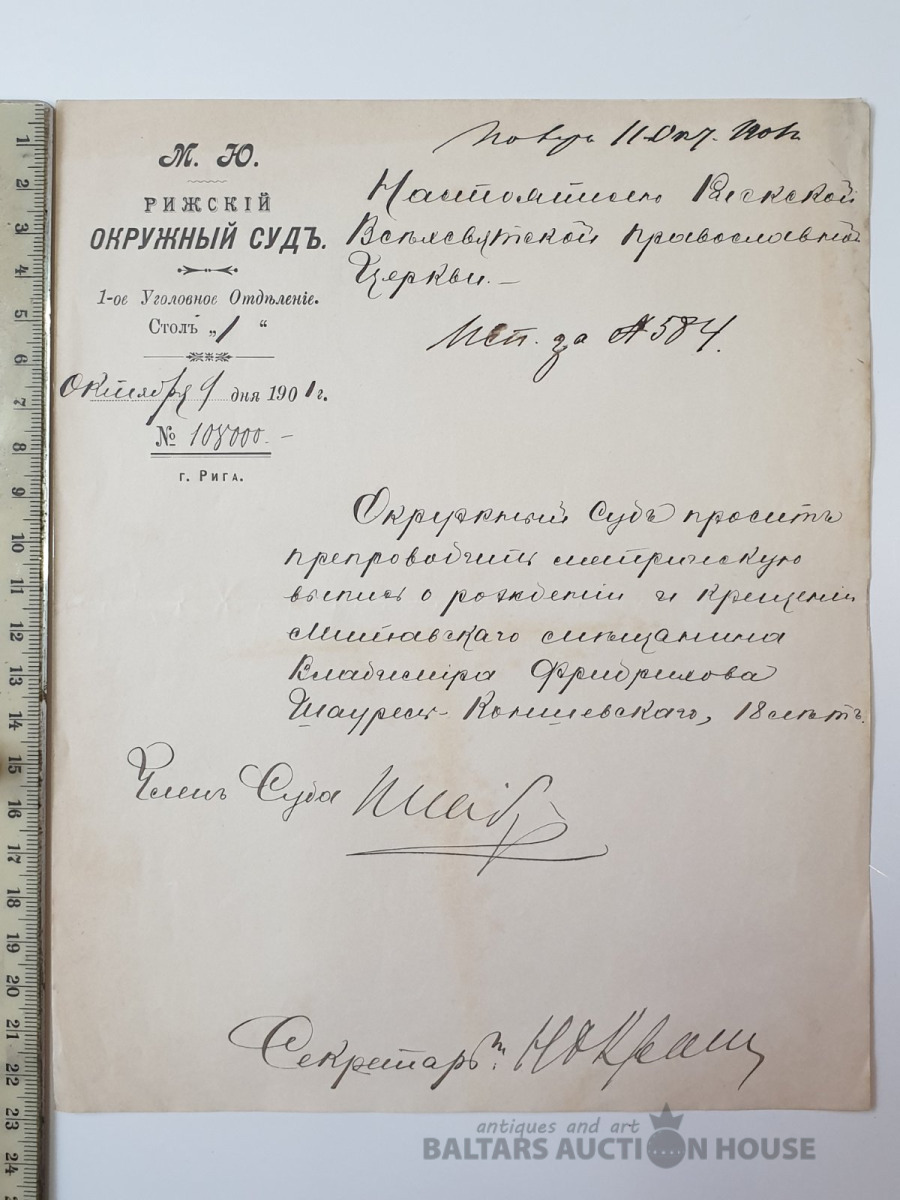 Получ. 11 Окт. 1901 г.
М. Ю.
РИЖСКІЙ
ОКРУЖНЫЙ СУДЪ.
1-ое Уголовное Отдѣленіе.
Столъ „1“
Октября 9 дня 1901 г.
№ 108000.-
г. Рига.
Настоятелю Рижской
Всѣхсвятской православной
Церкви.-
Исп. за № 584.
Окружный Судъ проситъ
препроводить метрическую
выпись о рожденіи и крещеніи
Митавскаго мѣщанина
Владиміра Фридрихова
18 лѣтъ.
Членъ Суда
Секретарь:
1 2 3 4 5 6 7 8 9 10 11 12 13 14 15 16 17 18 19 20 21 22 23 24
antiques and art
BALTARS AUCTION HOUSE